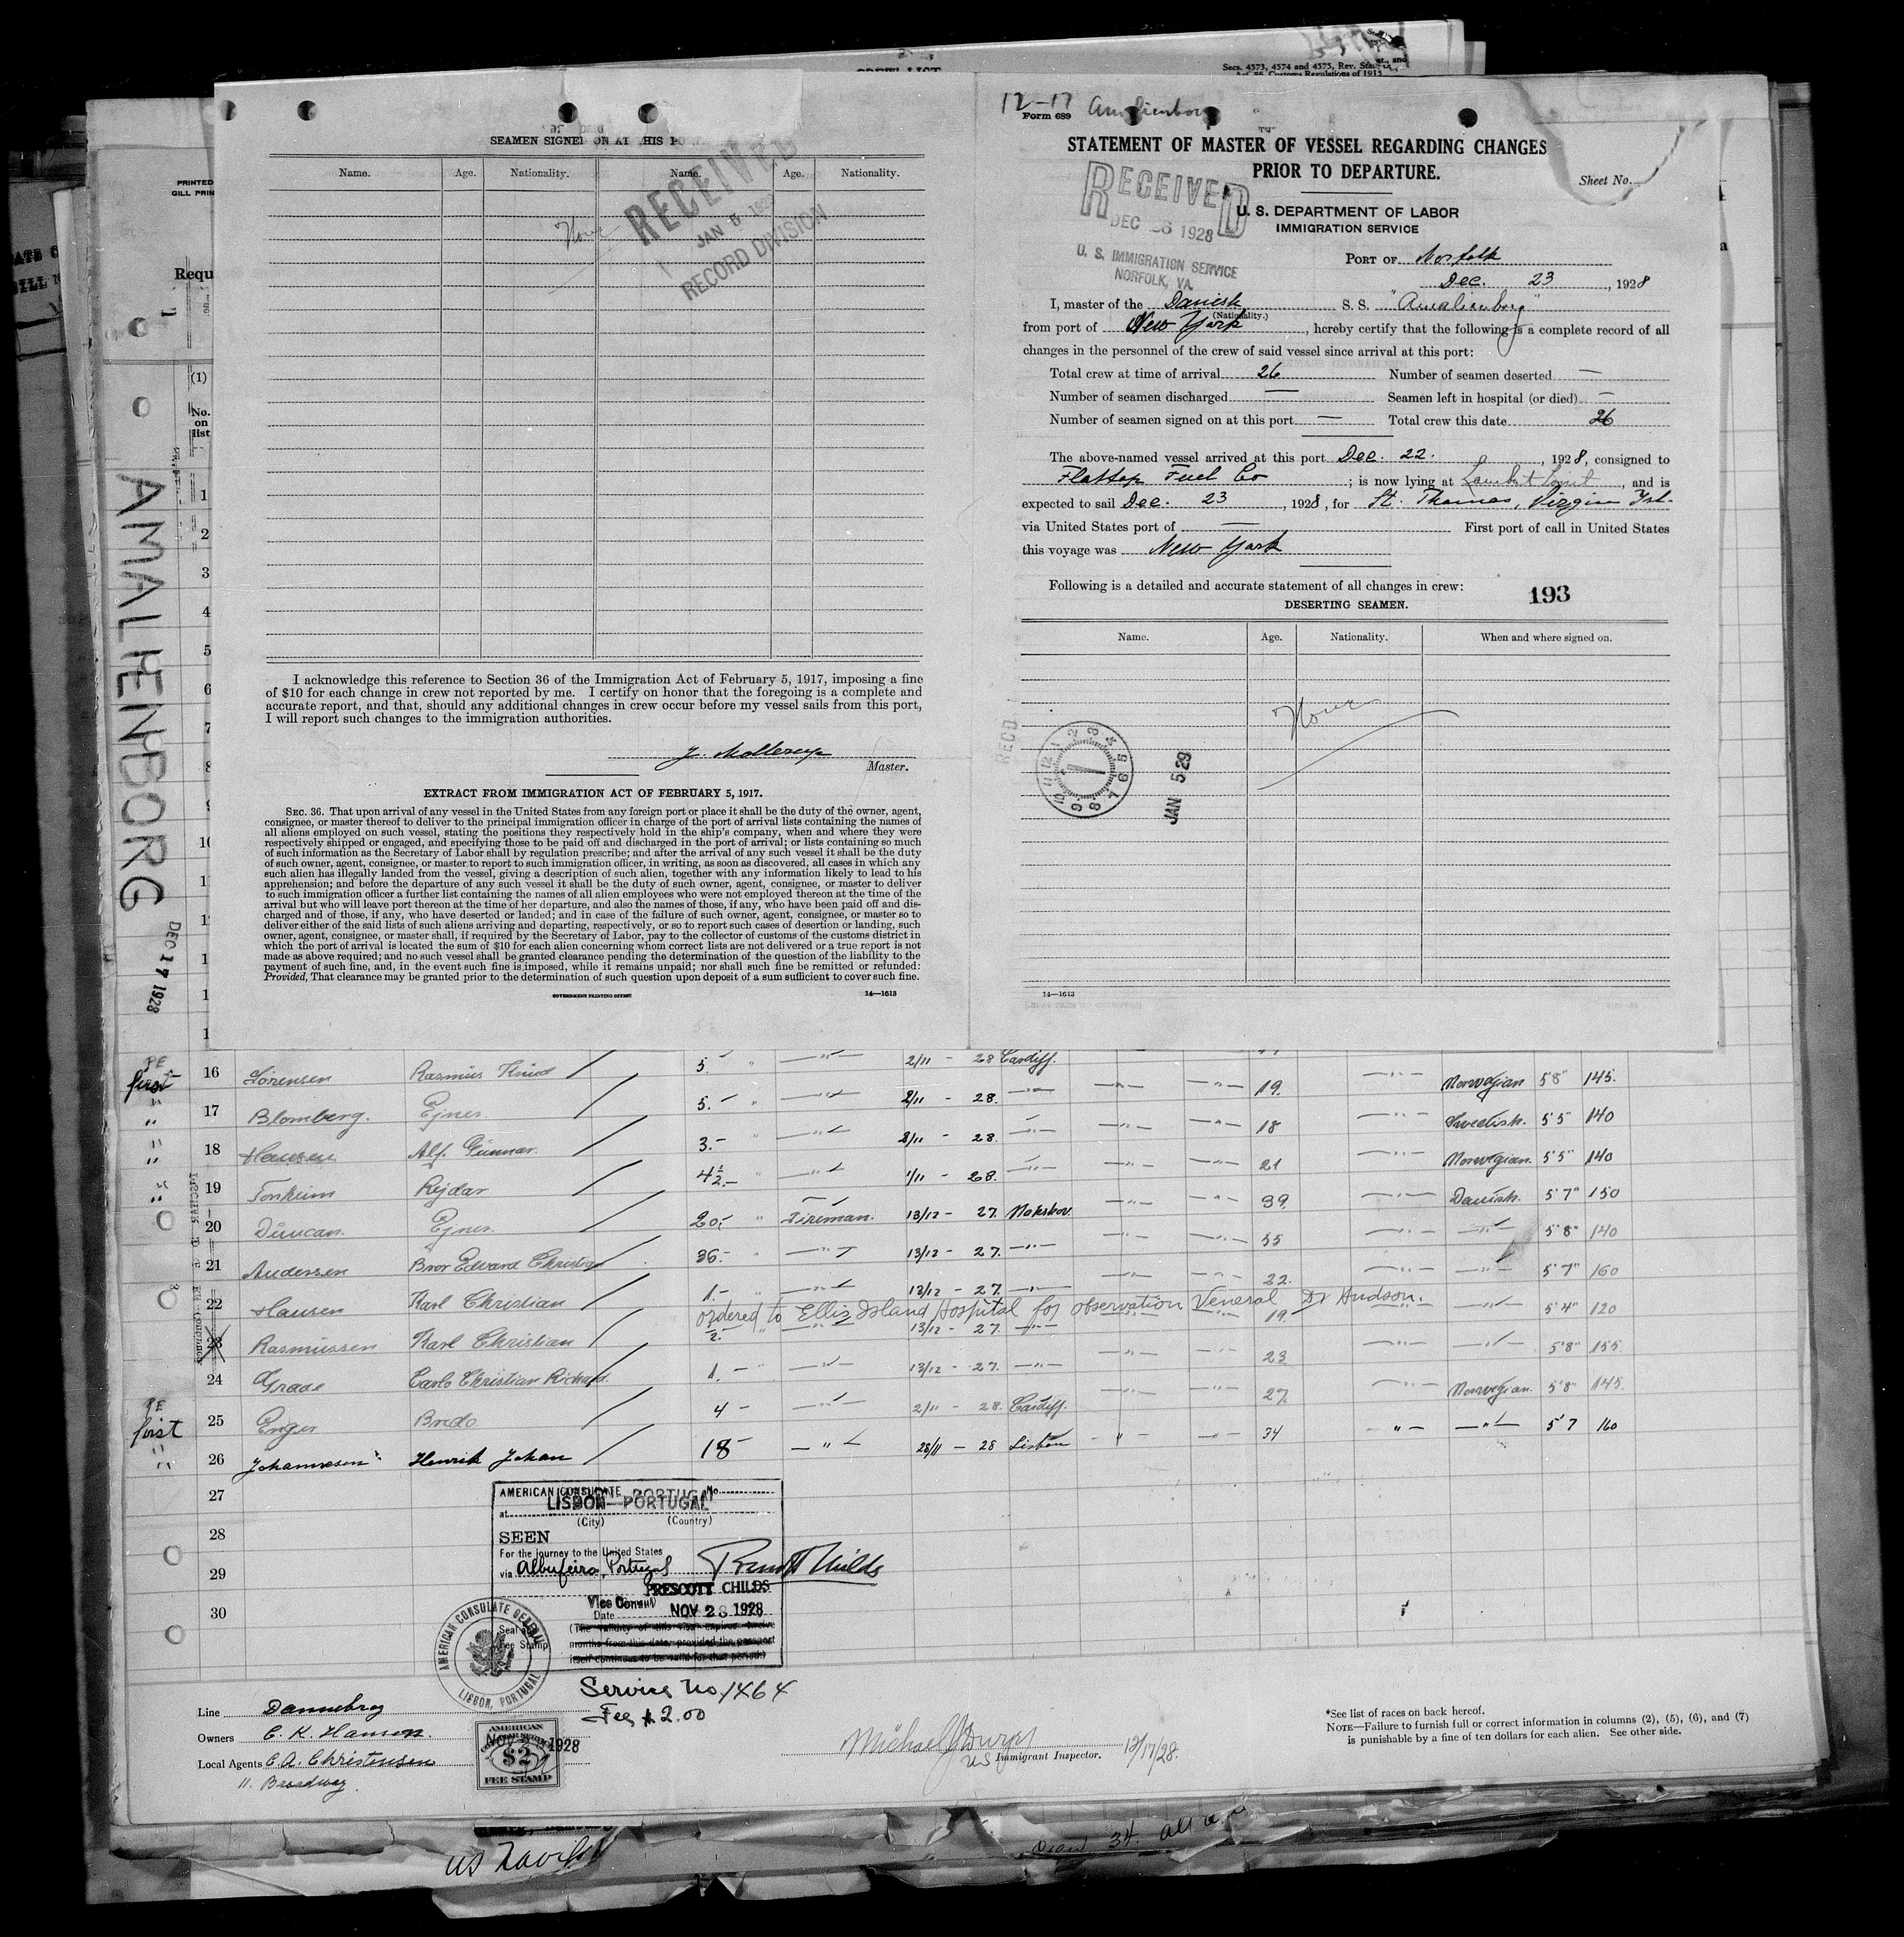 Secs. 4573, 4574 and 4575, Rev.
Act. 86, Customs Regulations of 1915
CREW LIST
SEAMEN SIGNED ON AT THIS PORT.
Name. Age. Nationality. Name. Age. Nationality.
None
RECEIVED
JAN 5
RECORD DIVISION
I acknowledge this reference to Section 36 of the Immigration Act of February 5, 1917, imposing a fine
of $10 for each change in crew not reported by me. I certify on honor that the foregoing is a complete and
accurate report, and that, should any additional changes in crew occur before my vessel sails from this port,
I will report such changes to the immigration authorities.
Master.
EXTRACT FROM IMMIGRATION ACT OF FEBRUARY 5, 1917.
SEC. 36. That upon arrival of any vessel in the United States from any foreign port or place it shall be the duty of the owner, agent,
consignee, or master thereof to deliver to the principal immigration officer in charge of the port of arrival lists containing the names of
all aliens employed on such vessel, stating the positions they respectively hold in the ship's company, when and where they were
respectively shipped or engaged, and specifying those to be paid off and discharged in the port of arrival; or lists containing so much
of such information as the Secretary of Labor shall by regulation prescribe; and after the arrival of any such vessel it shall be the duty
of such owner, agent, consignee, or master to report to such immigration officer, in writing, as soon as discovered, all cases in which any
such alien has illegally landed from the vessel, giving a description of such alien, together with any information likely to lead to his
apprehension; and before the departure of any such vessel it shall be the duty of such owner, agent, consignee, or master to deliver
to such immigration officer a further list containing the names of all alien employees who were not employed thereon at the time of the
arrival but who will leave port thereon at the time of her departure, and also the names of those, if any, who have been paid off and dis-
charged and of those, if any, who have deserted or landed; and in case of the failure of such owner, agent, consignee, or master so to
deliver either of the said lists of such aliens arriving and departing, respectively, or so to report such cases of desertion or landing, such
owner, agent, consignee, or master shall, if required by the Secretary of Labor, pay to the collector of customs of the customs district in
which the port of arrival is located the sum of $10 for each alien concerning whom correct lists are not delivered or a true report is not
made as above required; and no such vessel shall be granted clearance pending the determination of the question of the liability to the
payment of such fine, and, in the event such fine is imposed, while it remains unpaid; nor shall such fine be remitted or refunded:
Provided, That clearance may be granted prior to the determination of such question upon deposit of a sum sufficient to cover such fine.
GOVERNMENT PRINTING OFFICE 14—1613
12-17 Amalienborg
Form 689
STATEMENT OF MASTER OF VESSEL REGARDING CHANGES
PRIOR TO DEPARTURE.
Sheet No.
RECEIVED
DEC 26 1928
U. S. IMMIGRATION SERVICE
NORFOLK, VA.
U. S. DEPARTMENT OF LABOR
IMMIGRATION SERVICE
PORT OF Norfolk
Dec. 23, 1928
I, master of the Danish S. S. "Amalienborg"
(Nationality.)
from port of New York, hereby certify that the following is a complete record of all
changes in the personnel of the crew of said vessel since arrival at this port:
Total crew at time of arrival 26 Number of seamen deserted —
Number of seamen discharged — Seamen left in hospital (or died) —
Number of seamen signed on at this port — Total crew this date 26
The above-named vessel arrived at this port Dec. 22., 1928, consigned to
Flattop Fuel Co; is now lying at Lambert Point, and is
expected to sail Dec. 23, 1928, for St. Thomas, Virgin Isl.
via United States port of — First port of call in United States
this voyage was New York
Following is a detailed and accurate statement of all changes in crew:
193
DESERTING SEAMEN.
Name. Age. Nationality. When and where signed on.
None
REC'D
JAN 5 29
14—1613
PRINTED
GILL PRIN
Requ
(1)
No.
on
list
AMALIENBORG
DEC 17 1928
1
2
3
4
5
6
7
8
PE
first
16 Sörensen Rasmus Knud 5. 2/11 - 28 Cardiff.
17 Blomberg. Ejner. 5. 2/11 - 28. 19. Norwegian 5'8" 145.
18 Hansen Alf Gunnar. 3.- 2/11 - 28. 18 Swedish. 5'5" 140
19 Tonheim Rejdar 4½.- 1/11 - 28. 21 Norwegian. 5'5" 140
20 Duncan. Ejner. 20.- Fireman. 13/12 - 27. Nakskov. 39. Danish. 5'7" 150
21 Andersen Bror Edvard Christian 36.- 13/12 - 27. 55 5'8" 140
22 Hansen Karl Christian 1.- 13/12 - 27. 22. 5'7" 160
ordered to Ellis Island Hospital for observation Veneral Dr Hudson.
23 Rasmussen Karl Christian ½.- 13/12 - 27. 19. 5'4" 120
24 Graae Carlo Christian Richard. 1.- 13/12 - 27. 23 5'8" 155
PE
first
25 Enger Bredo 4 - 2/11 - 28. Cardiff. 27. Norwegian. 5'8" 145.
26 Johannesen Henrik Johan 18- 28/11 - 28 Lisbon 34 5'7 160
27
28
29
30
AMERICAN CONSULATE No.
LISBON—PORTUGAL
at
(City) (Country)
SEEN
For the journey to the United States
via Albufeira, Portugal
PRESCOTT CHILDS
Vice Consul
Date NOV 28 1928
(The validity of this visa expires twelve
months from this date, provided the passport
itself continues to be valid for that period.)
Seal and
Fee Stamp
AMERICAN CONSULATE GENERAL
LISBON, PORTUGAL
Service No. 1464
Fee $2.00
AMERICAN
$2
FEE STAMP
1928
Line Dannebrog
Owners C. K. Hansen.
Local Agents C.A. Christensen
11. Broadway
US Immigrant Inspector. 12/17/28.
*See list of races on back hereof.
NOTE—Failure to furnish full or correct information in columns (2), (5), (6), and (7)
is punishable by a fine of ten dollars for each alien. See other side.